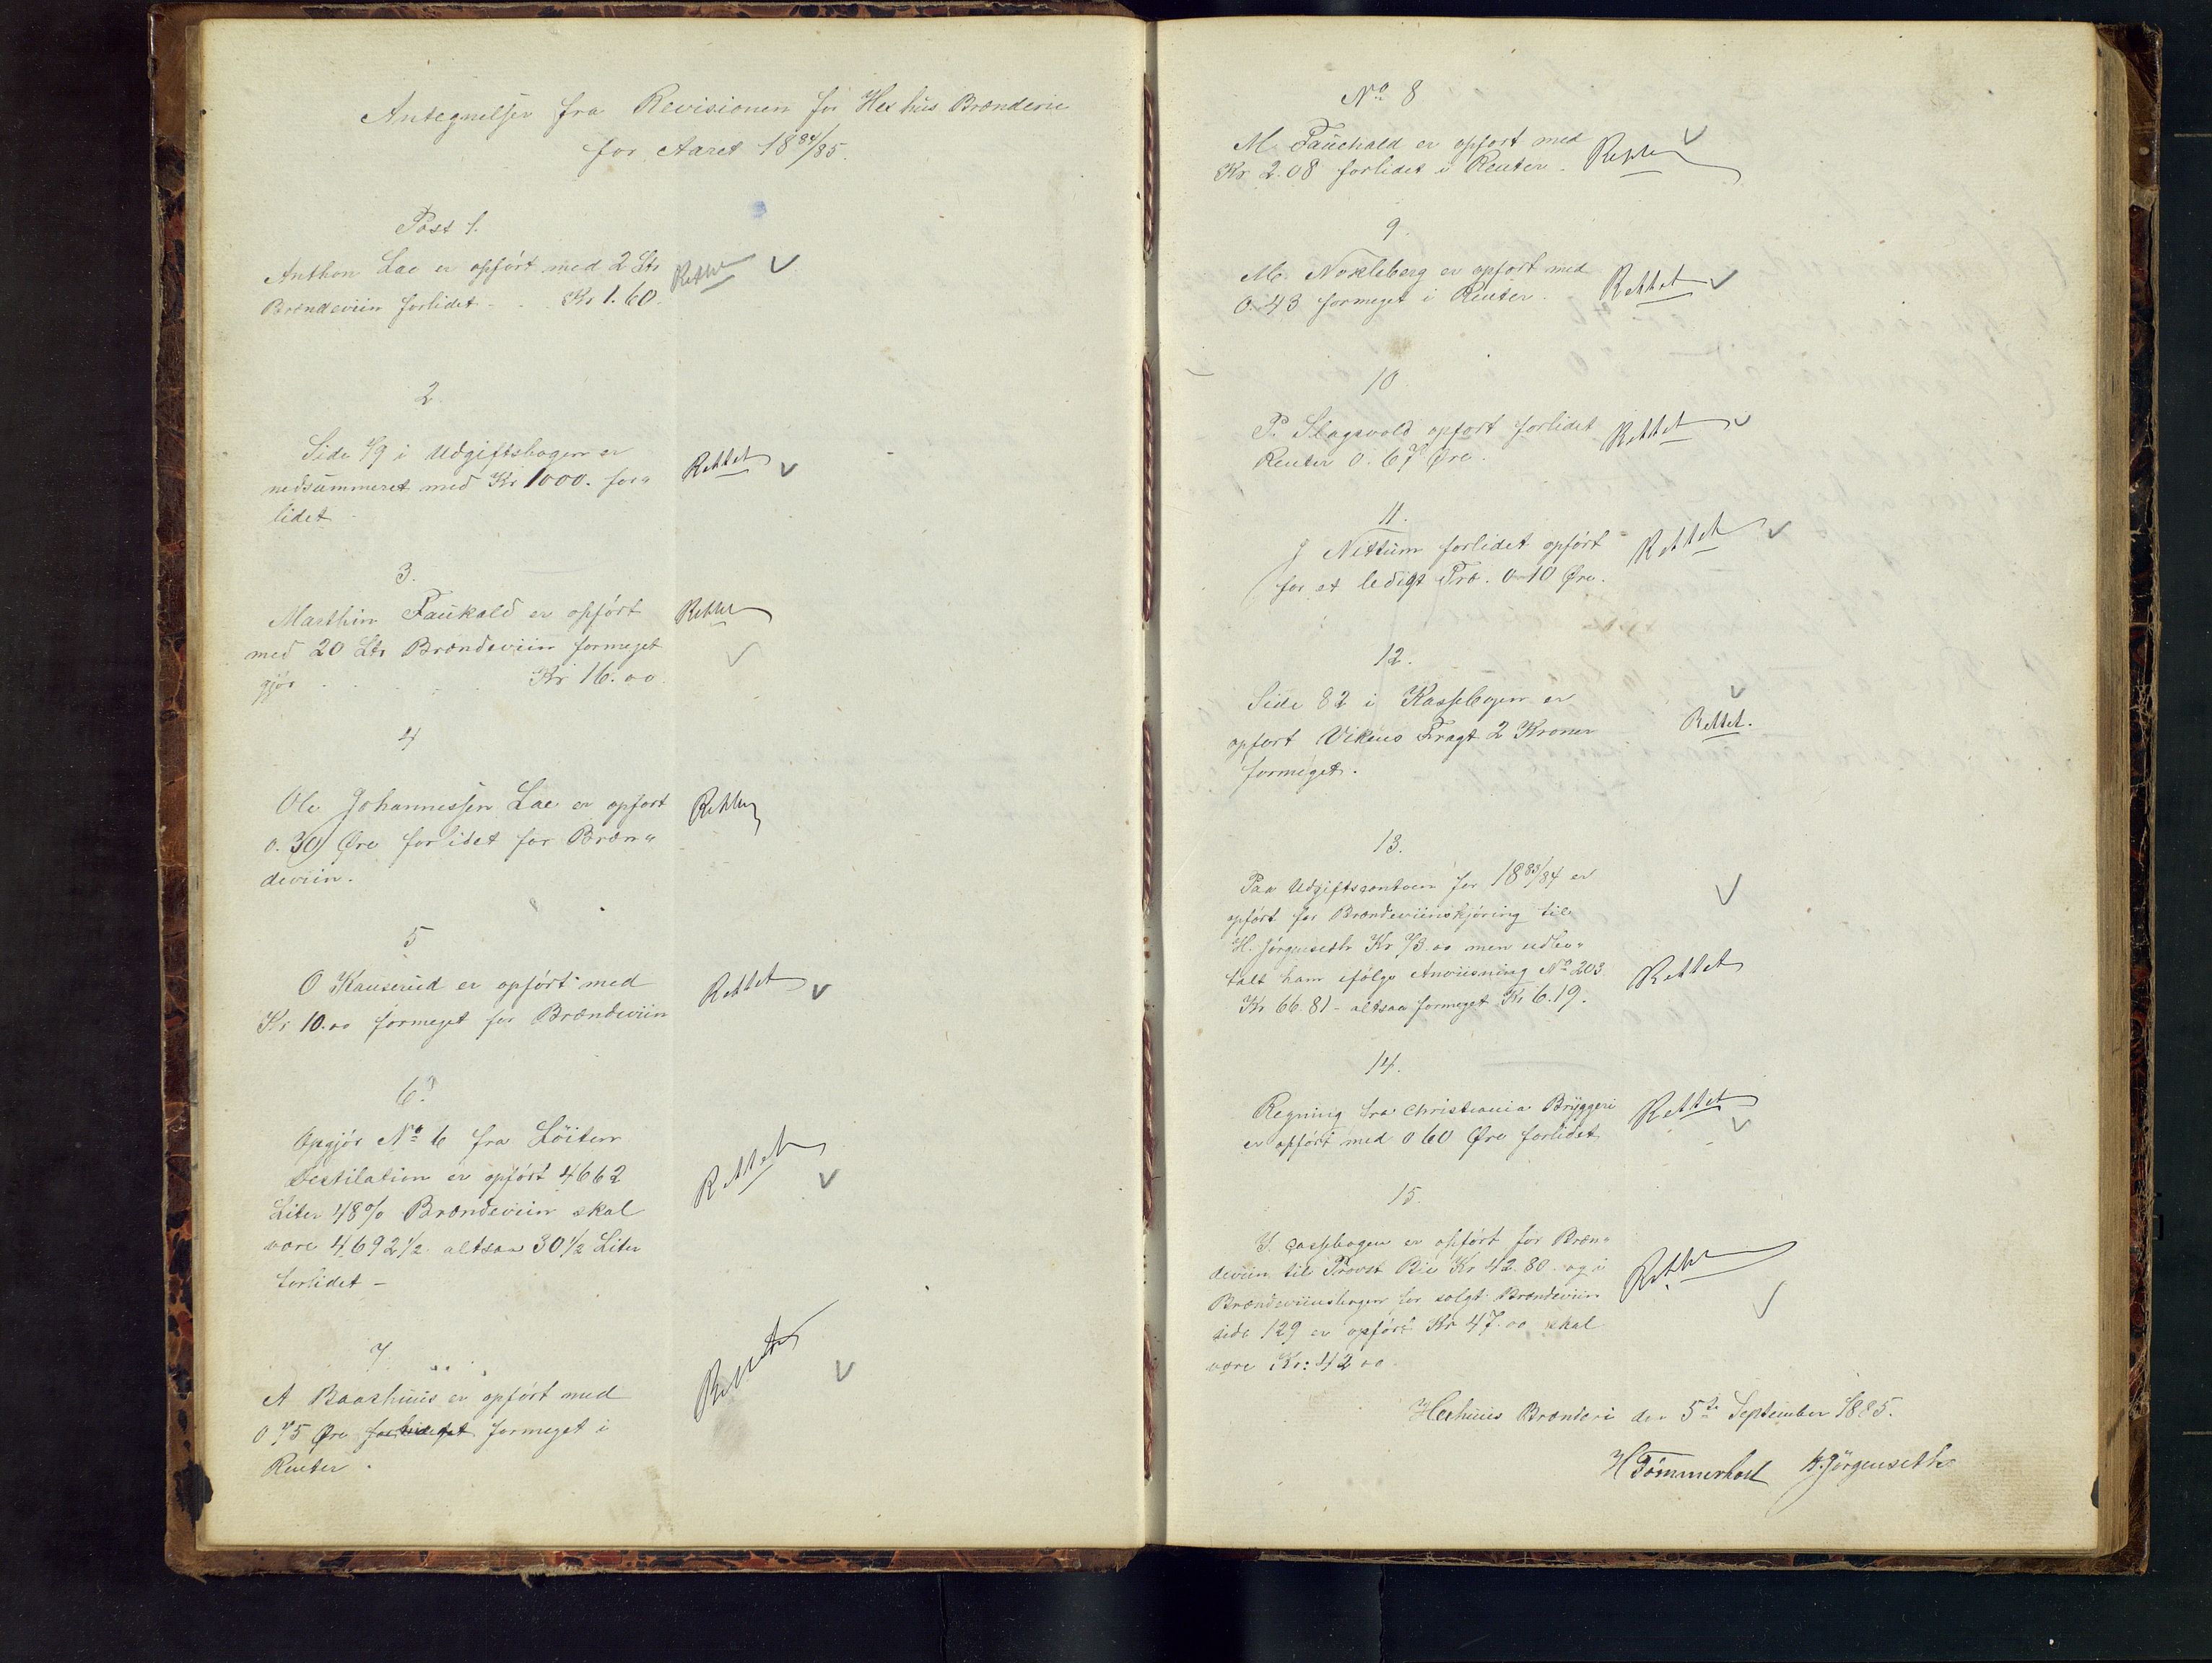 Antegnelser fra Revisionen for Hexhus Brænderie
for Aaret 18 84/85.
Post 1.
Anthon Lae er opført med 2 Ltr Rettet V
Brændeviin forlidet - . Kr 1.60.
2.
Side 79 i Udgiftsbogen er
nedsummeret med Kr 1000. for„ Rettet V
lidet -
3.
Marthin Faukald er opført Rettet
med 20 Ltr Brændeviin formeget V
gjør . . . . Kr 16.00
4
Ole Johannessen Lae er opført Rettet
0.30 Øre forlidet for Bræn„
deviin.
5
O Kauserud er opført med Rettet V
Kr 10.00 formeget for Brændeviin
6.
Opgjør No 6 fra Löiten
Destilation er opført 4662 Rettet
Liter 48% Brændeviin skal V
være 4692½ altsaa 30½ Liter
forlidet -
7
A Baashuus er opført med V
0 75 Øre formeget i
Renter .
No 8
M. Fauchald er opført med V
Kr 2.08 forlidet i Renter.
9.
M. Nokleberg er opført med Rettet V
0.43 formeget i Renter.
10
P. Slagsvold opført forlidet Rettet V
Renter 0.67 Øre.
11.
J Nittum forlidet opført Rettet V
for et ledigt Træ. 0-10 Øre.
12.
Side 82 i Kassebogen er V
opført Vikens Fragt 2 Kroner Rettet.
formeget.
13.
Paa Udgiftscontoen for 18 83/84 er V
opført for Brændeviinskjøring til
H. Jørgenseth Kr 73.00 men udbe„
talt ham ifølge Anviisning No 203. Rettet
Kr 66.81 - altsaa formeget Kr 6.19.
14.
Regning fra Christiania Bryggeri Rettet
er opført med 0 60 Øre forlidet V
15.
I Cassebogen er opført for Bræn„
deviin til Provst Bie Kr 42.80 og i Rettet
Brændeviinsbogen for solgt Brændeviin V
side 129 er opført Kr 47.00 skal
være Kr: 42 00
Hexhuus Brænderi den 5te September 1885.
H Tömmerhol H. Jørgenseth